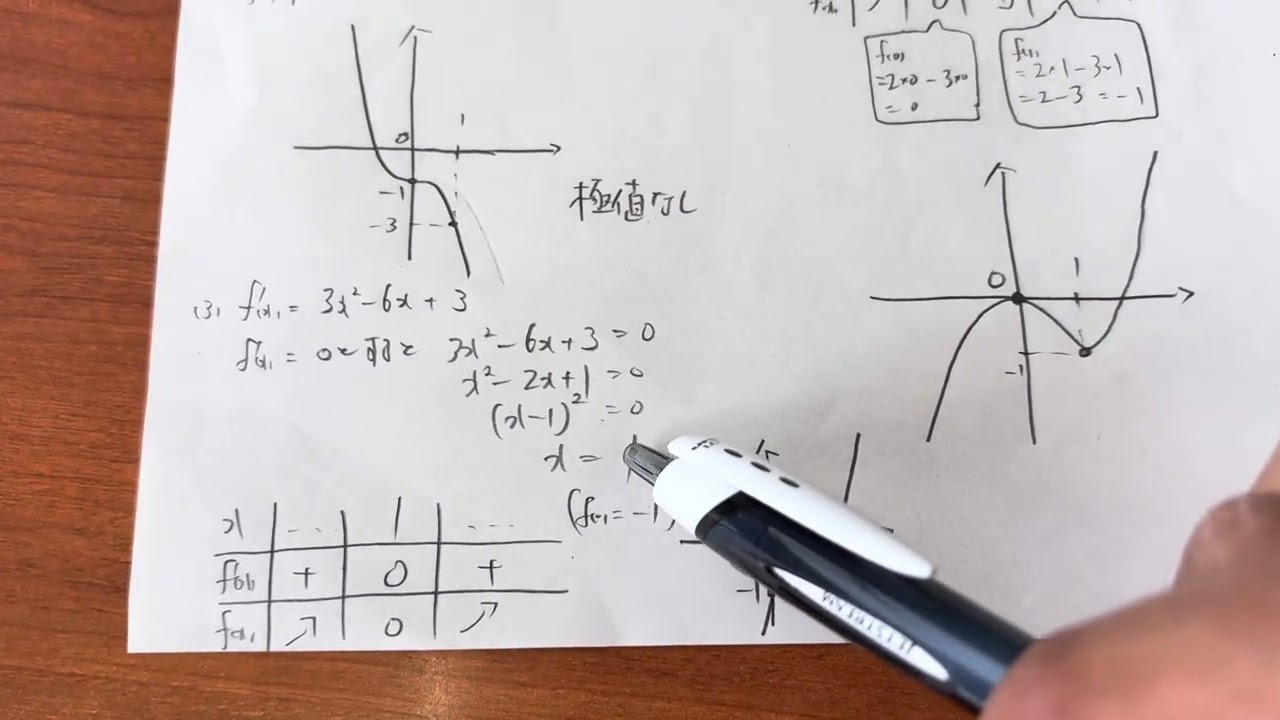 0
1
-1
-3
極値なし
(3) f'(x) = 3x²-6x+3
f'(x) = 0とすると 3x²-6x+3 = 0
x²-2x+1 = 0
(x-1)² = 0
x =
x ... 1 ...
f'(x) + 0 +
f(x) ↗ 0 ↗
-1
f(0)
=2×0-3×0
= 0
f(1)
=2×1-3×1
=2-3 = -1
0
1
-1
JETSTREAM